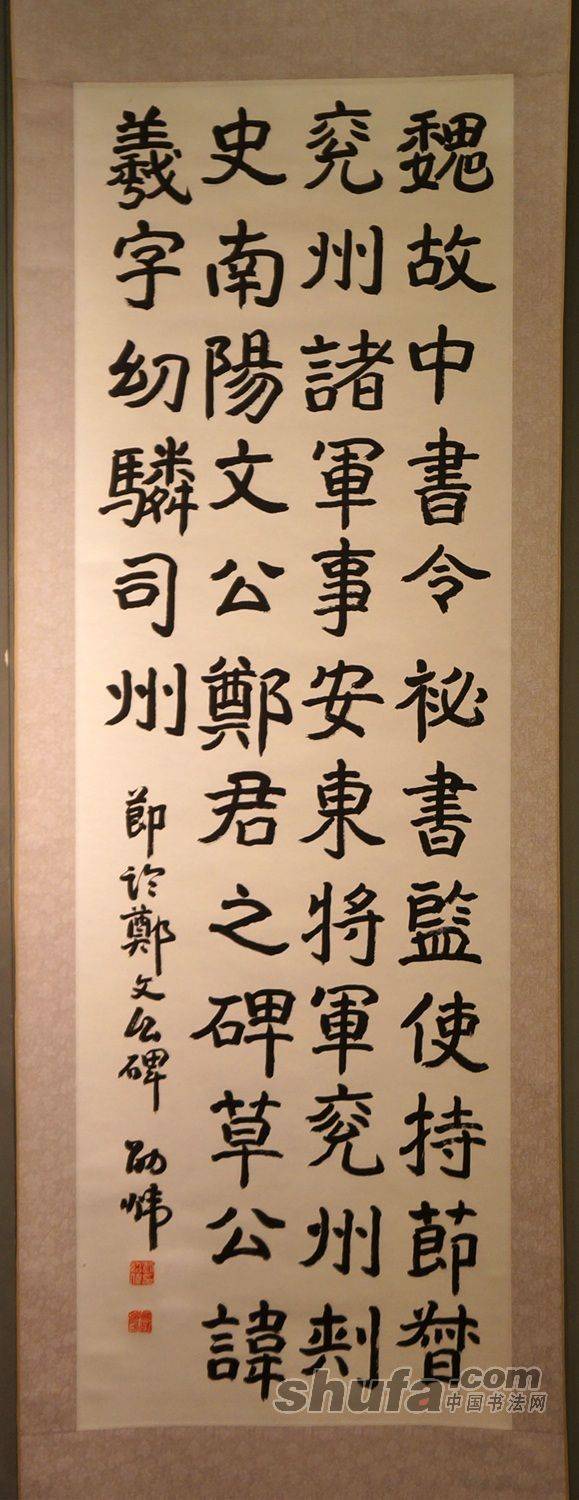 魏故中書令祕書監使持節督
兖州諸軍事安東將軍兖州刺
史南陽文公鄭君之碑草公諱
羲字幼驎司州
節临鄭文公碑
shufa.com
中国书法网